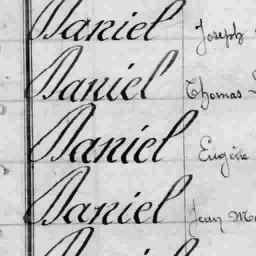 Daniel Joseph
Daniel Thomas
Daniel Eugène
Daniel Jean
Daniel